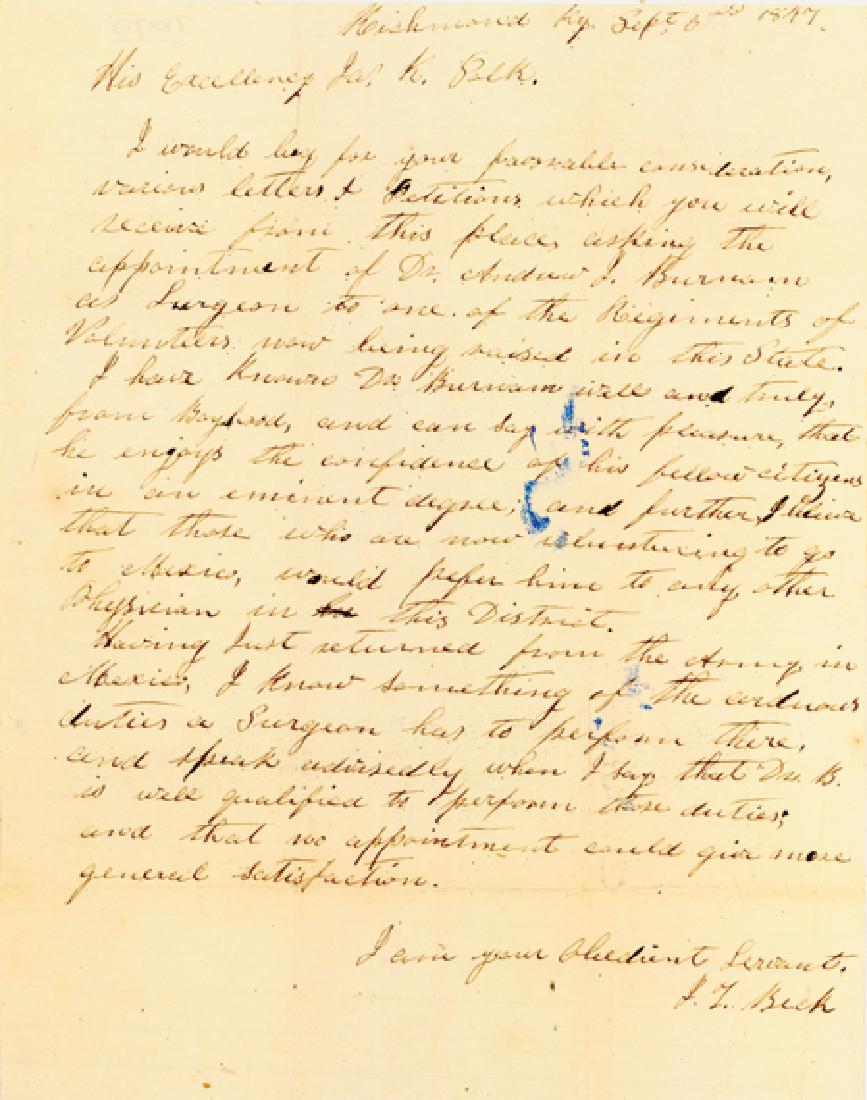 Richmond Ky. Sept. 1847.
His Excellency Jas. K. Polk.
I would beg for your favorable consideration,
various letters & Petitions which you will
receive from this place, asking the
appointment of Dr. Andrew J. Burnam
as Surgeon to one of the Regiments of
Volunteers now being raised in this State.
I have Known Dr. Burnam well and truly,
from Boyhood, and can say with pleasure, that
he enjoys the confidence of his fellow citizens
in an eminent degree, and further, I believe
that those who are now volunteering to go
to Mexico, would prefer him to any other
Physician in this District.
Having Just returned from the Army in
Mexico, I Know something of the arduous
duties a Surgeon has to perform there,
and speak advisedly when I say that Dr. B.
is well qualified to perform those duties;
and that no appointment could give more
general satisfaction.
I am your Obedient Servant.
Beck